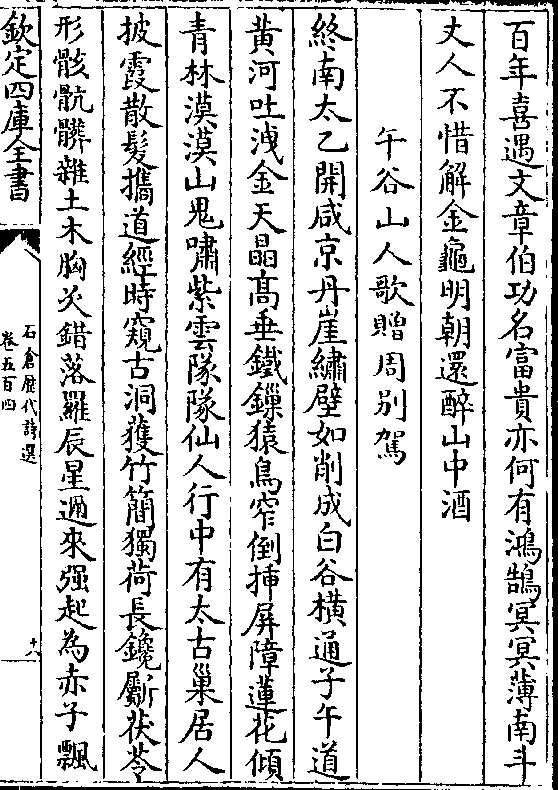 百年喜遇文章伯功名富貴亦何有鴻鵠冥冥薄南斗
丈人不惜解金龜明朝還醉山中酒
午谷山人歌贈周别駕
終南太乙開咸京丹崖繡壁如削成白谷橫通子午道
黄河吐洩金天晶髙垂鐵鏁猿鳥窄倒揷屏障蓮花傾
青林漠漠山鬼嘯紫雲隊隊仙人行中有太古巢居人
披霞散髮攜道經時窺古洞獲竹簡獨荷長鑱斸茯苓
形骸骯髒雜土木胸次錯落羅辰星邇來强起為赤子飄
欽定四庫全書
石倉歴代詩選
卷五百四
十八